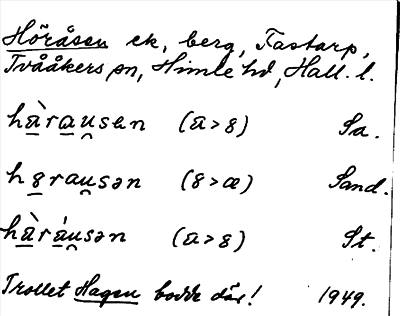 Höråsen ek, berg, Fastarp,
Tvååkers sn, Himle hd, Hall. l.
hàrau̯sən (a>8) Sa.
h8rau̯sən (8>æ) Sand.
hàráu̯sən (a>8) St.
Trollet Hagen bodde där! 1949.